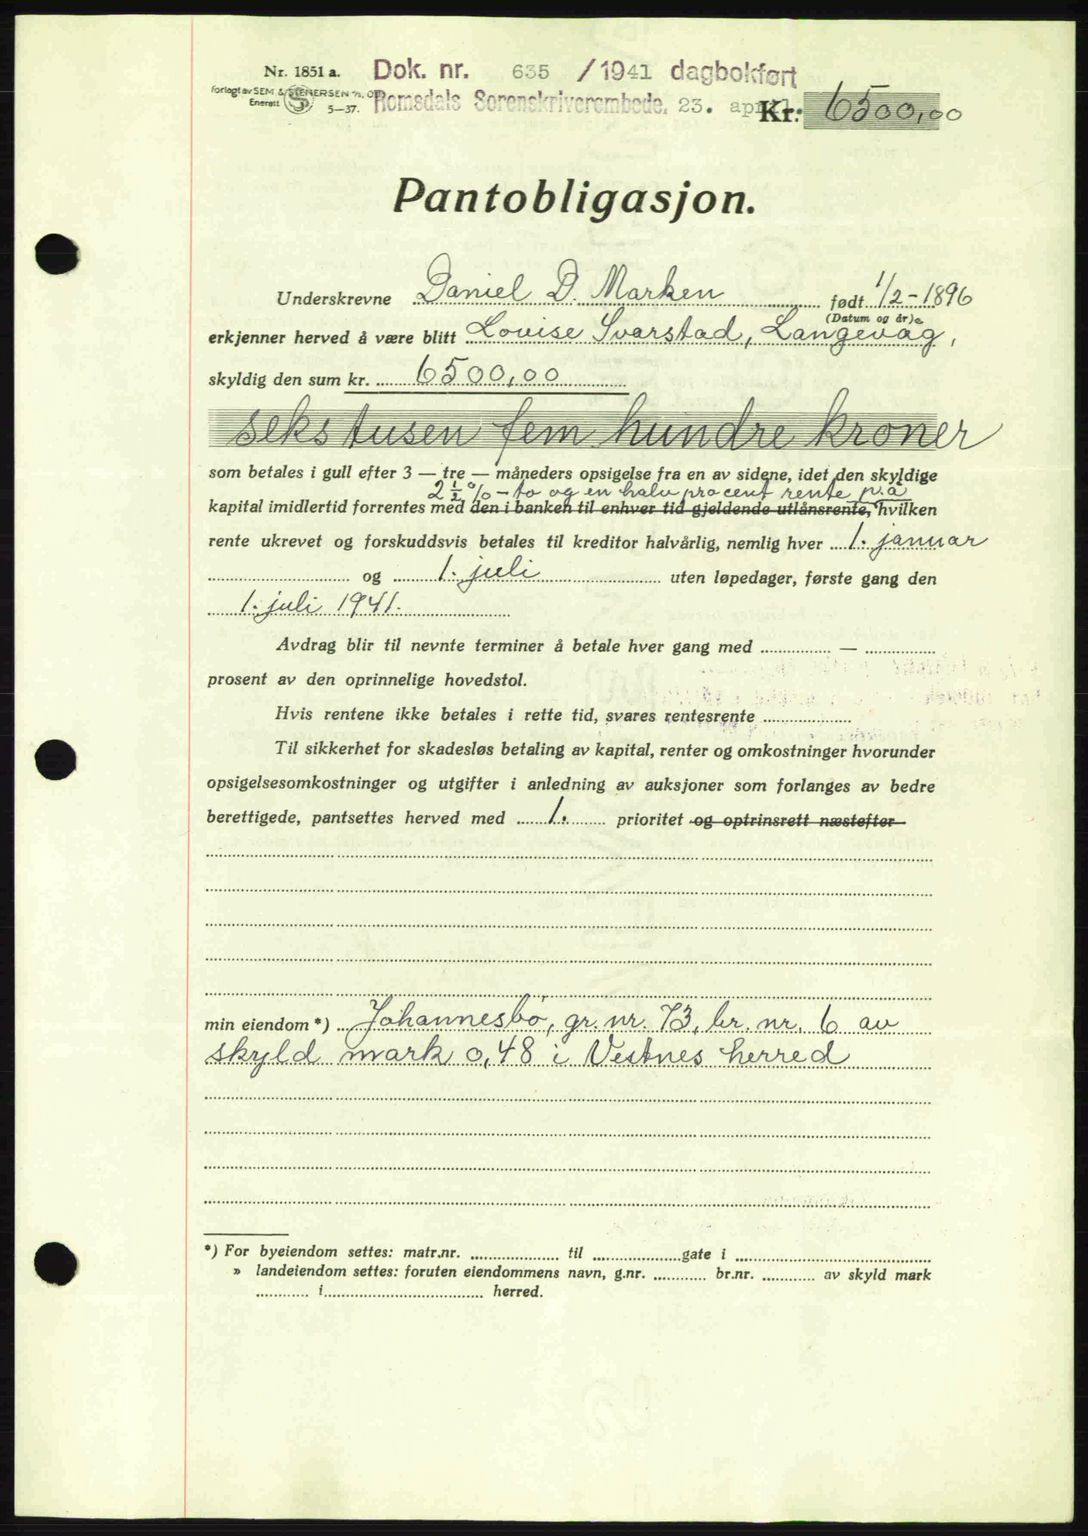 Nr. 1851 a. Dok. nr. 635 /1941 dagbokført
Forlagt av SEM & STENERSEN A/S, OSLO
Enerett 5—37. Romsdals Sorenskriverembede. 23. april. Kr. 6500,00
Pantobligasjon.
Underskrevne Daniel D. Marken født 1/2-1896
(Datum og år)
erkjenner herved å være blitt Lovise Svarstad, Langevåg,
skyldig den sum kr. 6500,00
seks tusen fem hundre kroner
som betales i gull efter 3 — tre — måneders opsigelse fra en av sidene, idet den skyldige
2 ½ % - to og en halv procent rente p.a.
kapital imidlertid forrentes med den i banken til enhver tid gjeldende utlånsrente, hvilken
rente ukrevet og forskuddsvis betales til kreditor halvårlig, nemlig hver 1. januar
og 1. juli uten løpedager, første gang den
1. juli 1941.
Avdrag blir til nevnte terminer å betale hver gang med —
prosent av den oprinnelige hovedstol.
Hvis rentene ikke betales i rette tid, svares rentesrente
Til sikkerhet for skadesløs betaling av kapital, renter og omkostninger hvorunder
opsigelsesomkostninger og utgifter i anledning av auksjoner som forlanges av bedre
berettigede, pantsettes herved med 1. prioritet og optrinsrett næstefter
min eiendom *) Johannesbø, gr. nr. 73, br. nr. 6 av
skyld mark 0,48 i Vestnes herred
*) For byeiendom settes: matr.nr. til gate i
» landeiendom settes: foruten eiendommens navn, g.nr. br.nr. av skyld mark
i herred.